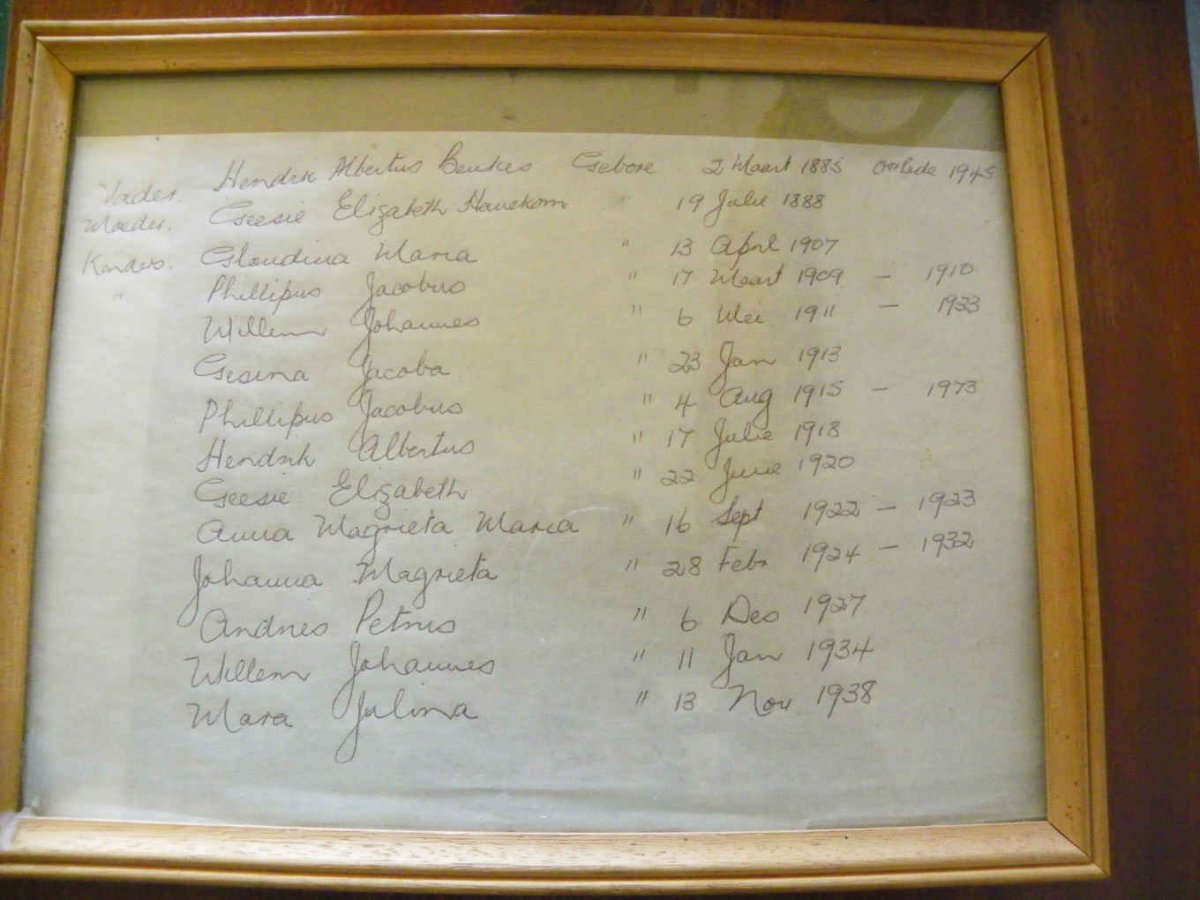 Vader. Hendrik Albertus Beukes Gebore 2 Maart 1885 Oorlede 1945
Moeder. Geesie Elizabeth Hanekom " 19 Julie 1888
Kinders. Glaudina Maria " 13 April 1907
" Phillipus Jacobus " 17 Maart 1909 - 1910
Willem Johannes " 6 Mei 1911 - 1933
Gesina Jacoba " 23 Jan 1913
Phillipus Jacobus " 4 Aug 1915 - 1973
Hendrik Albertus " 17 Julie 1918
Geesie Elizabeth " 22 Junie 1920
Anna Magrieta Maria " 16 Sept 1922 - 1923
Johanna Magrieta " 28 Febr 1924 - 1932
Andries Petrus " 6 Des 1927
Willem Johannes " 11 Jan 1934
Mara Julina " 13 Nov 1938